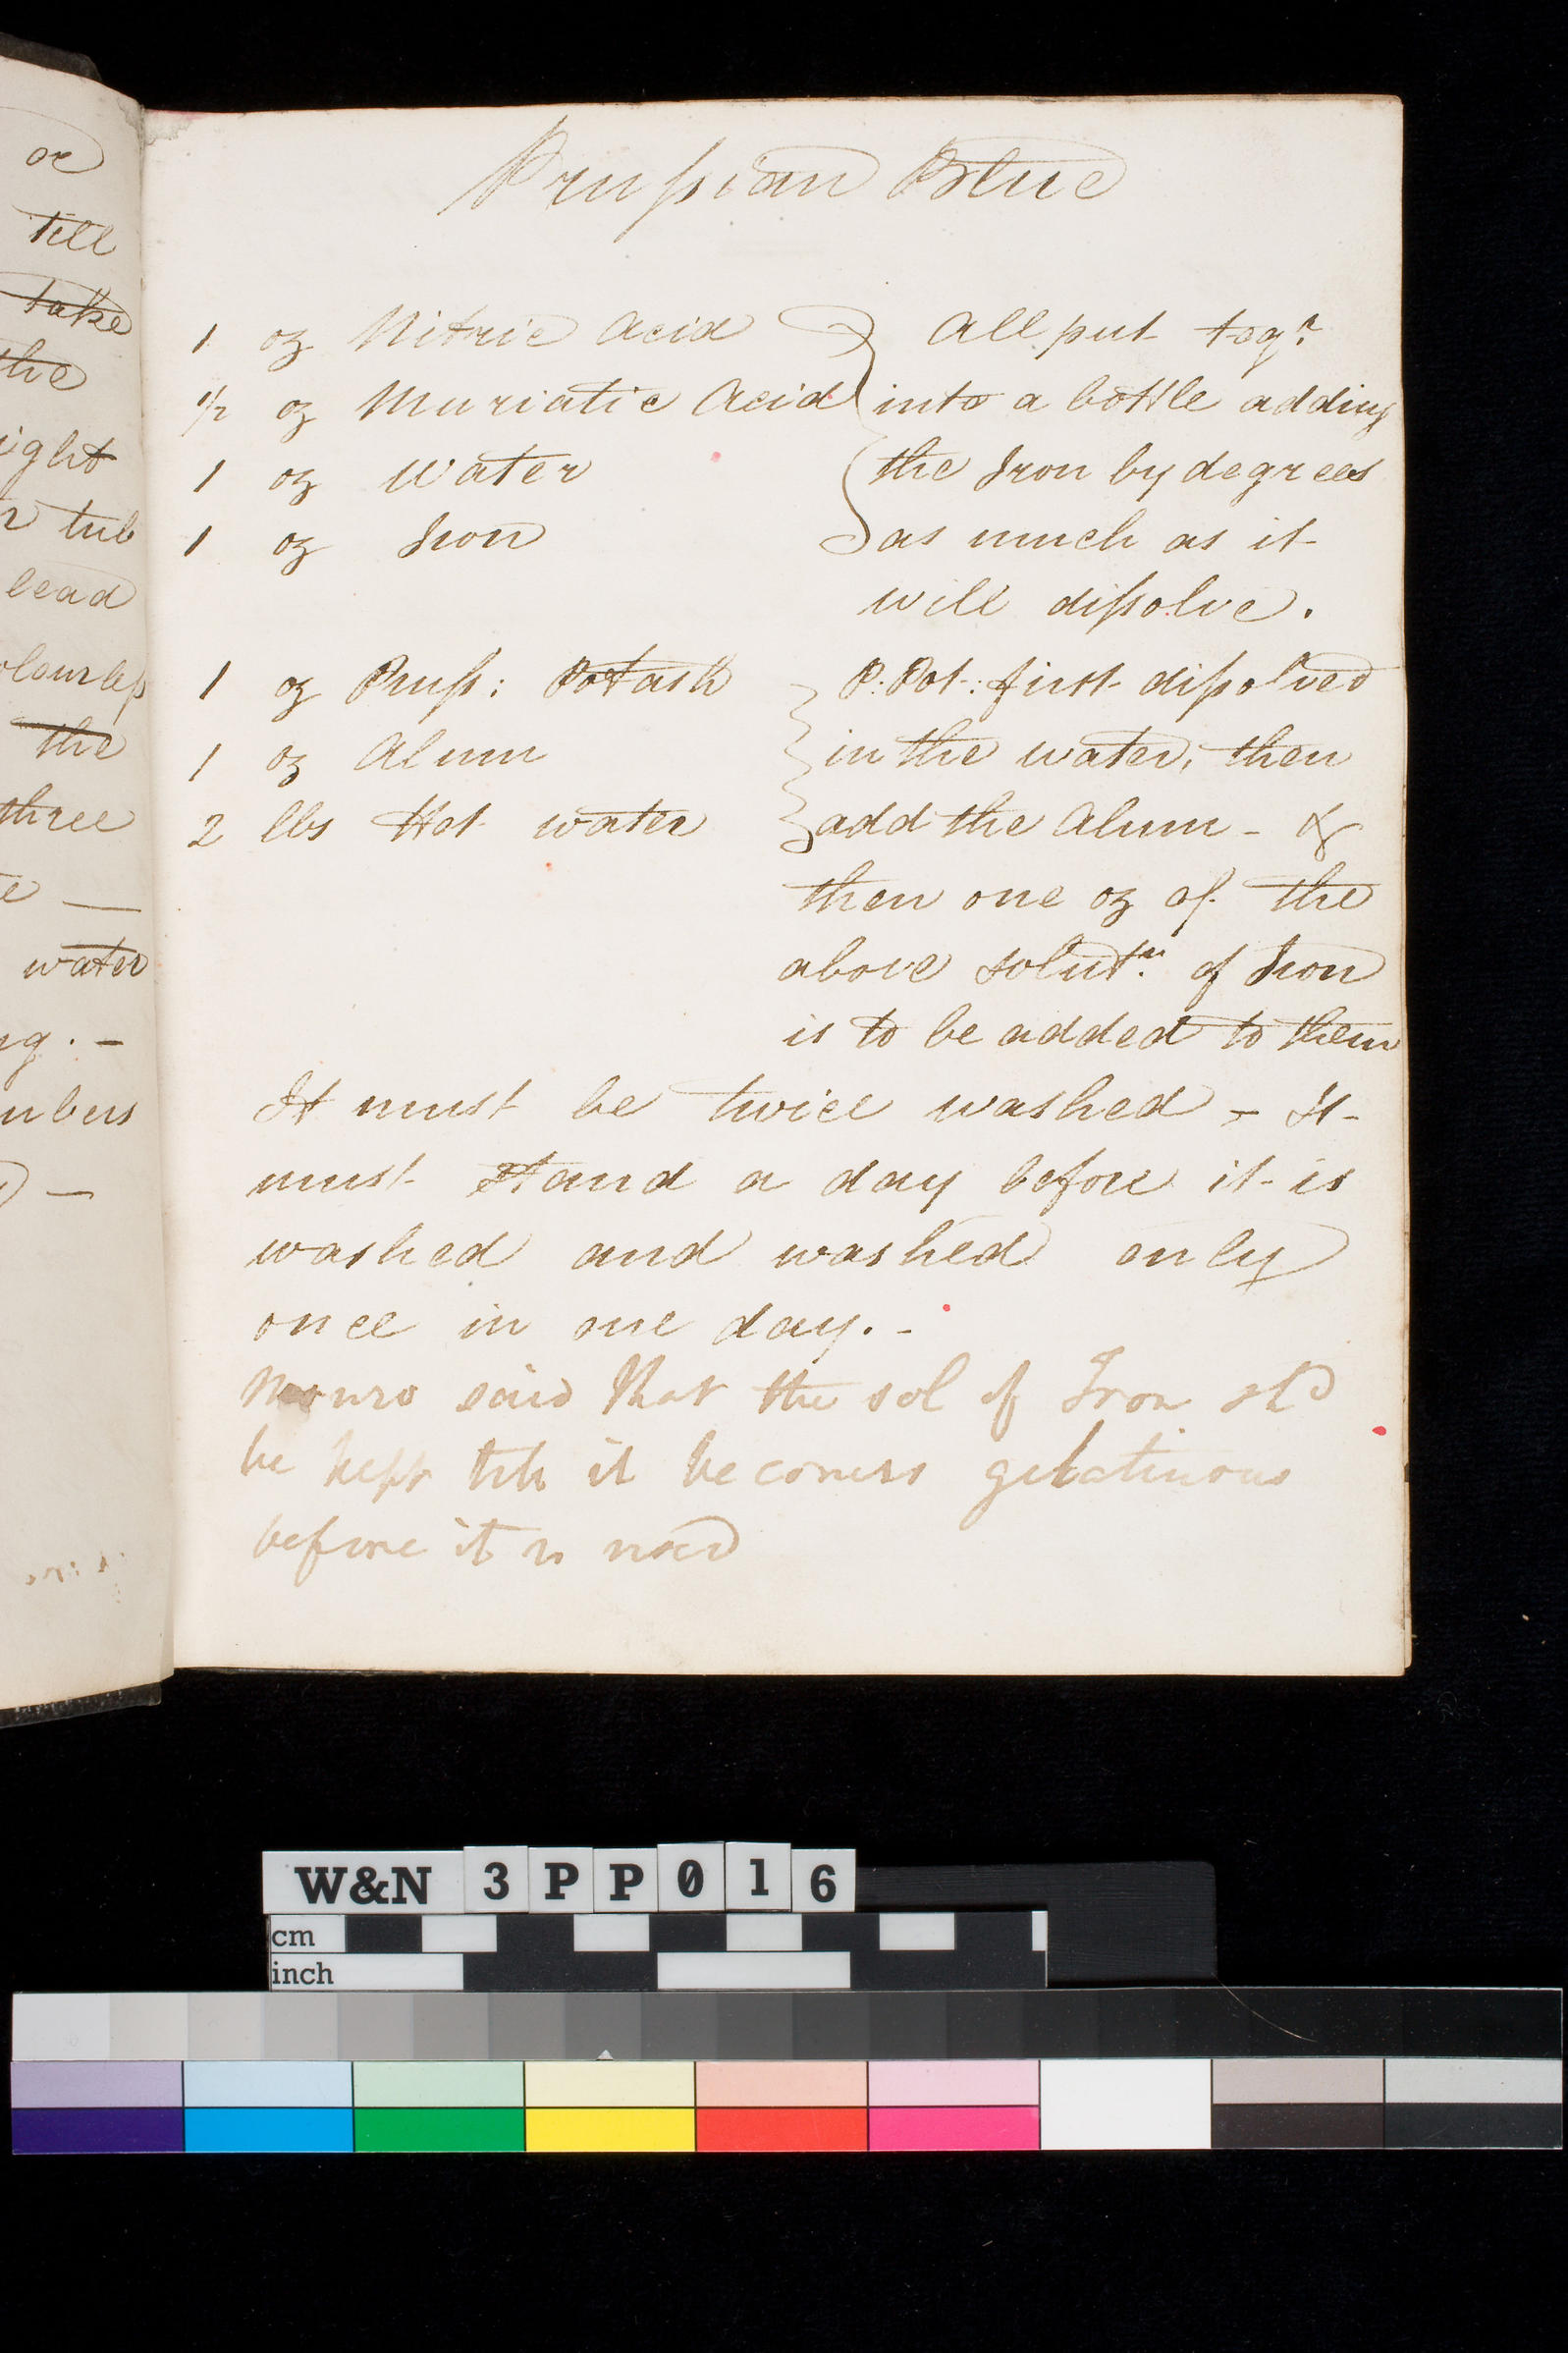 or
till
take
the
ight
tub
lead
olourless
the
three
water
ng. -
mbers
Prussian Blue
1 oz Nitric Acid All put togr
1/2 oz Muriatic Acid into a bottle adding
1 oz Water the Iron by degrees
1 oz Iron as much as it
will dissolve.
1 oz Pruss: Potash P: Pot: first dissolved
1 oz Alum in the water, then
2 lbs Hot water add the Alum - &
then one oz of the
above solutn. of Iron
is to be added to them
It must be twice washed - It
must stand a day before it is
washed and washed only
once in one day. -
Monro said that the sol of Iron shd
be kept till it becomes gelatinous
before it is used
W&N 3PP016
cm
inch